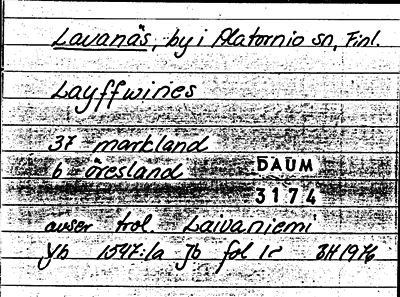 Lavanäs, by i Alatornio sn, Finl.
Layffwines
37 markland
6 öresland
DAUM
3174
avser trol. Laivaniemi
Yb 1547:1a Jb fol 1r BH 1976